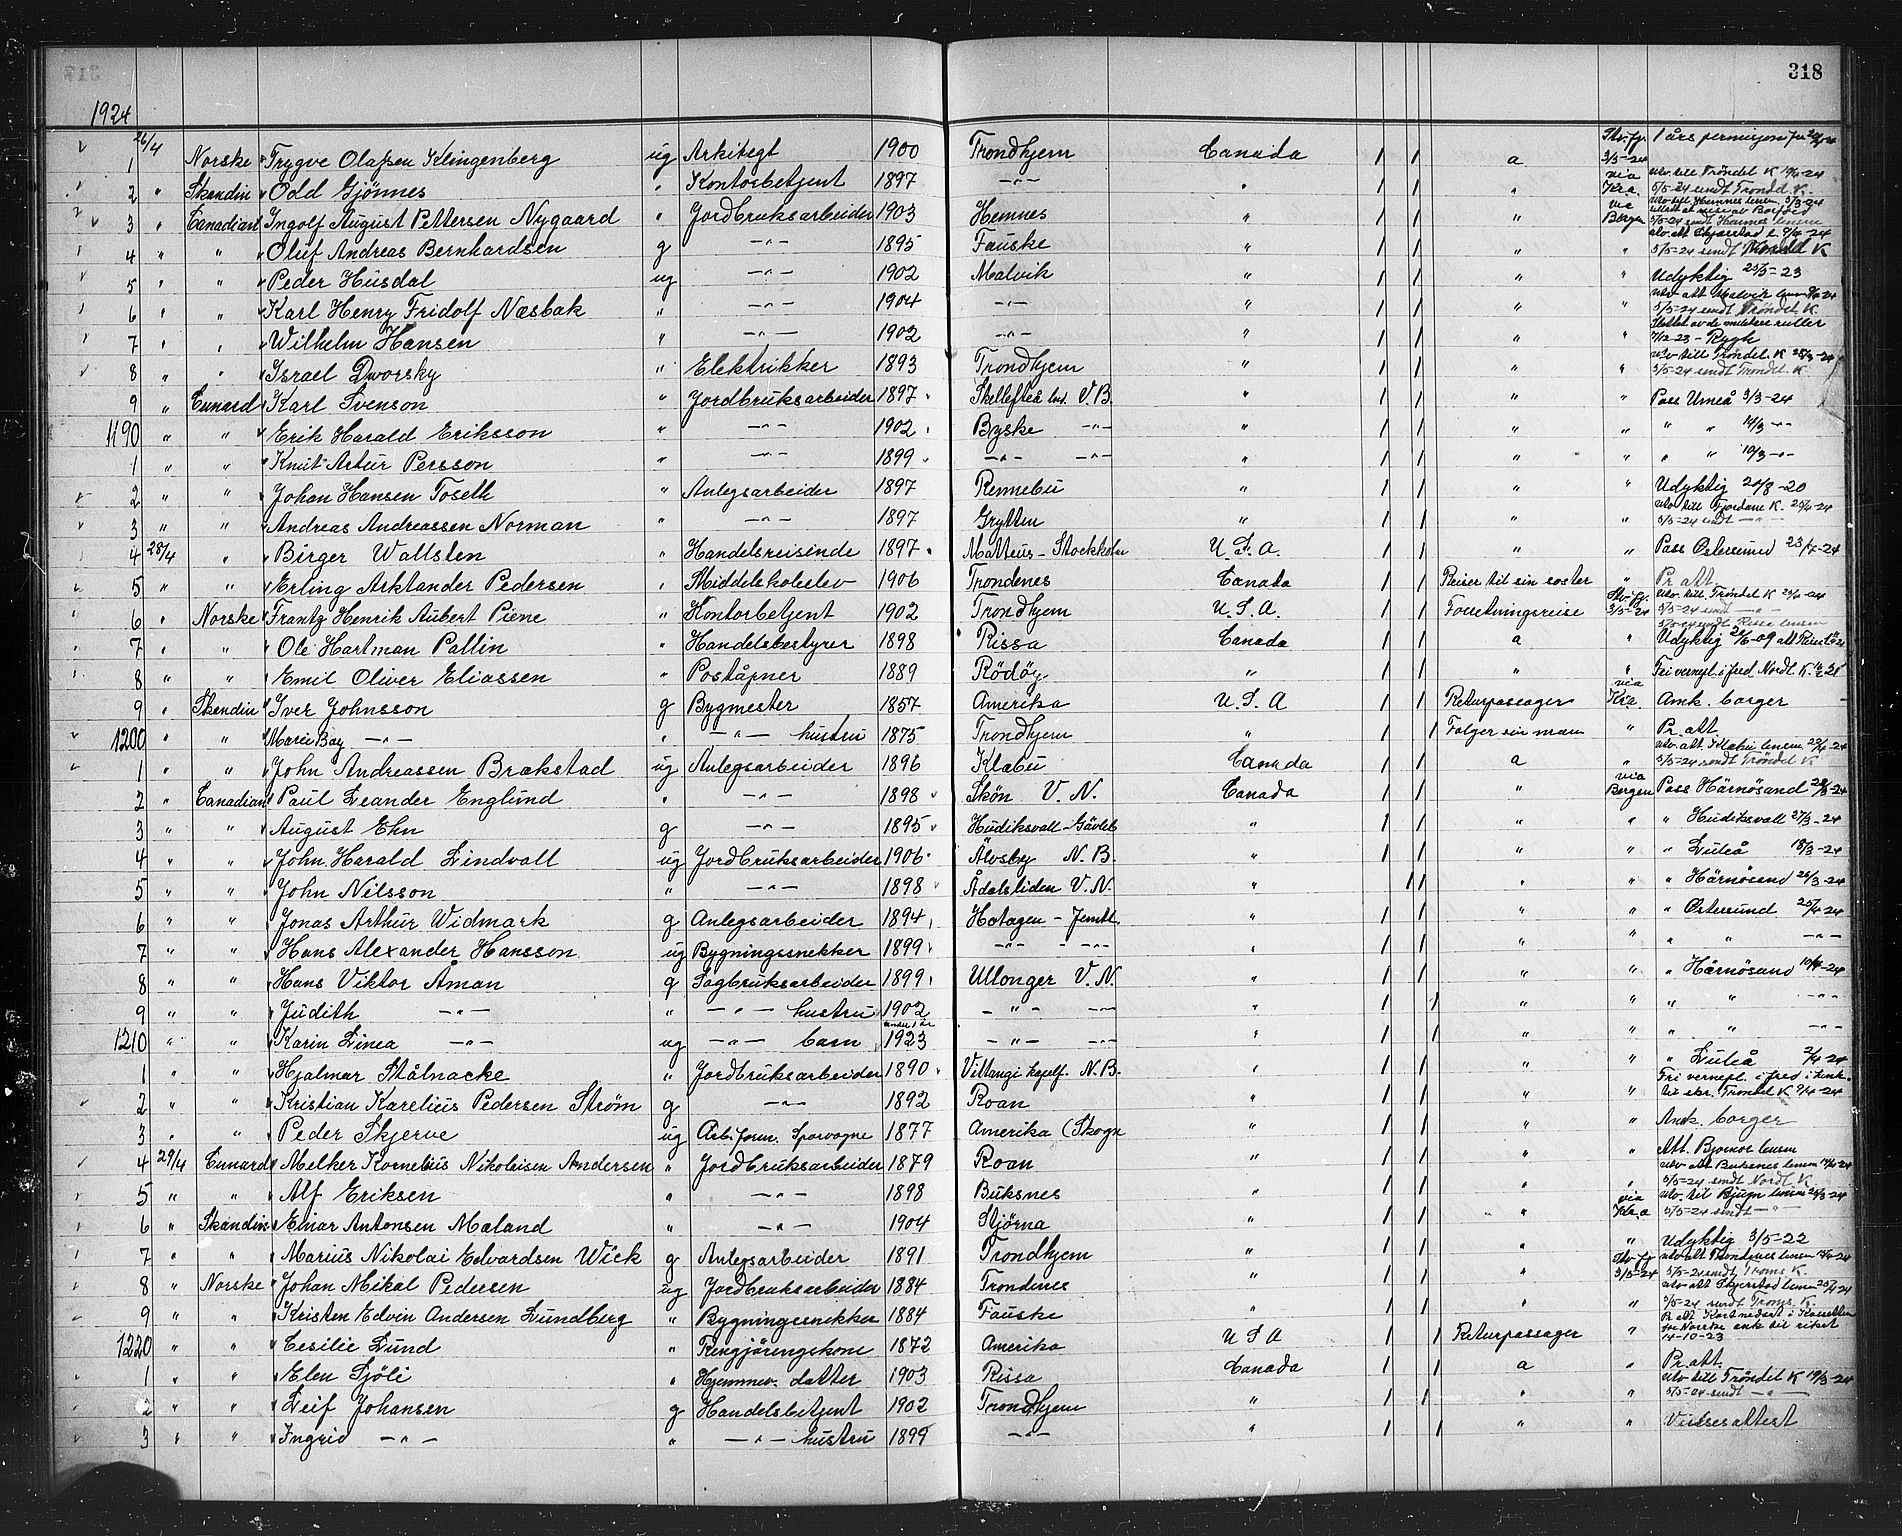 318
1924
1 26/4 Norske Trygve Olafsen Klingenberg ug Arkitegt 1900 Trondhjem Canada 1 1 a Stv-fg. 3/5-24 1 års permisjon
2 " Skandin Odd Gjønnes " Kontorbetjent 1897 -"- " 1 1 " via Kra. utv. till Tröndel K 5/5-24 sendt Trondel K.
3 " Canadian Ingolf August Pettersen Nygaard " Jordbruksarbeider 1903 Hemnes " 1 1 " via Bergen 5/5-24 sendt Hemnes lensm
4 " " Oluf Andreas Bernhardsen g -"- 1895 Fauske " 1 1 " " 5/5-24 sendt Trondel K
5 " " Peder Husdal ug -"- 1902 Malvik " 1 1 " " Udyktig 23/5-23
6 " " Karl Henry Fridolf Næsbak " -"- 1904 -"- " 1 1 " " utv att Malvik lensm 5/5-24 sendt Tröndel K.
7 " " Wilhelm Hansen " -"- 1902 -"- " 1 1 " " Slettet av de militære ruller 7/12-23 - Rygh
8 " " Israel Dworsky " Elektrikker 1893 Trondhjem " 1 1 " " utv till Tröndel. K 5/5-24 sendt Trondel. K.
9 " Cunard Karl Svenson " Jordbruksarbeider 1897 Skellefteå V. B. " 1 1 " " Pass Umeå 3/3-24
1190 " " Erik Harald Eriksson " -"- 1902 Byske -"- " 1 1 " " " " 14/3 -"-
1 " " Knut Artur Persson " -"- 1899 -"- -"- " 1 1 " " " " 10/3 -"-
2 " " Johan Hansen Toseth " Anlegsarbeider 1897 Rennebu " 1 1 " " Udyktig 20/8-20
3 " " Andreas Andreassen Norman " -"- 1897 Grytten " 1 1 " " utv till Fjordane K. 5/5-24 sendt -"-
4 28/4 " Birger Wallsten " Handelsreisende 1897 Matteus - Stockholm U. S. A. 1 1 " " Pass Ostersund 23/4-24
5 " " Erling Arktander Pedersen " Middelskolelev 1906 Trondenes Canada 1 1 Reiser til sin soster " Pr. att
6 " Norske Frantz Henrik Aubert Piene " Kontorbetjent 1902 Trondhjem U. S. A. 1 1 Forretningsreise Stv-fg. 3/5-24 utv. till. Tröndel K 5/5-24 sendt -"-
7 " " Ole Hartman Pallin " Handelsbestyrer 1898 Rissa Canada 1 1 a " 5/5-24 sendt Rissa lensm Udyktig
8 " " Emil Oliver Eliassen " Poståpner 1889 Rödöy " 1 1 " " Fri vernpl. i fred. Nordl. K.
9 " Skandin Iver Johnsson g Bygmester 1857 Amerika U. S. A 1 1 Returpassager via Kra. Amk. borger
1200 " " Marie Bay -"- " -"- hustru 1875 Trondhjem " 1 1 Følger sin man " Pr. att.
1 " " John Andreassen Brækstad ug Anlegsarbeider 1896 Klæbu Canada 1 1 a " utv. att. Klæbu lensm 5/5-24 sendt Tröndel K
2 " Canadian Paul Leander Englund " -"- 1898 Skön V. N. Canada 1 1 " via Bergen Pass Härnösand 28/3-24
3 " " August Ehn g -"- 1895 Hudiksvall - Gävleb " 1 1 " " " Hudiksvall 27/3-24
4 " " John Harald Lindvall ug Jordbruksarbeider 1906 Älvsby N. B. " 1 1 " " " Luleå 18/3-24
5 " " John Nilsson " -"- 1898 Ådalsliden V. N. " 1 1 " " " Härnösand 26/3-24
6 " " Jonas Arthur Widmark g Anlegsarbeider 1894 Hotagen - Jemtl. " 1 1 " " " Ostersund 25/4-24
7 " " Hans Alexander Hansson ug Bygningssnekker 1899 -"- -"- " 1 1 " " " " -"-
8 " " Hans Viktor Åman g Sagbruksarbeider 1899 Ullonger V. N. " 1 1 " " " Härnösand 10/4-24
9 " " Judith -"- " -"- hustru 1902 -"- -"- " 1 1 " " " " -"-
1210 " " Karin Linea -"- ug -"- barn under 1 år 1923 -"- -"- " 1 1 " " " " -"-
1 " " Hjalmar Stålnacke " Jordbruksarbeider 1890 Vittangi kapelf. N. B. " 1 1 " " " Luleå 2/4-24
2 " " Kristian Karelius Pedersen Strøm g -"- 1892 Roan " 1 1 " " Fri vernepl. i fred Trondel K 9/4-24
3 " " Peder Skjerve ug Arb. form. Sporvogne 1877 Amerika (Skogn " 1 1 " " Amk. borger
4 29/4 Cunard Melker Kornelius Nikolaisen Andersen " Jordbruksarbeider 1879 Roan " 1 1 " " Att. Bjornor lensm
5 " " Alf Eriksen " -"- 1898 Buksnes " 1 1 " " utv att Buksnes lensm 5/5-24 sendt Nordl K
6 " Skandin Einar Antonsen Mæland " -"- 1904 Stjörna " 1 1 " via Kra utv. til Bjugn lensm 5/5-24 sendt -"-
7 " " Marius Nikolai Edvardsen Wick g Anlegsarbeider 1891 Trondhjem " 1 1 " " Udyktig 3/5-22
8 " Norske Johan Mikal Pedersen ug Jordbruksarbeider 1884 Trondenes " 1 1 " Stv fg 3/5-24 utv att Trondenes lensm 5/5-24 sendt Troms K.
9 " " Kristen Edvin Andersen Lundberg " Bygningssnekker 1884 Fauske " 1 1 " " utv att Skjerstad lensm 5/5-24 sendt Troms. K.
1220 " " Cesilie Lund " Rengjöringskone 1872 Amerika U S A 1 1 Returpassager " Pr att Norske ank til riket 14-10-23
1 " " Elen Sjöli " Hjemmev. datter 1903 Rissa Canada 1 1 a " Pr. att.
2 " " Leif Johansen g Handelsbetjent 1902 Trondhjem " 1 1 " " utv till Tröndel K 19/3-24 5/5-24 sendt -"-
3 " " Ingrid -"- " -"- hustru 1899 -"- " 1 1 " " Vielsesattest